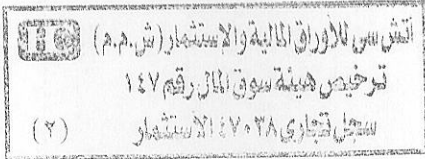 اتش سى للأوراق المالية والاستثمار (ش.م.م)
ترخيص هيئة سوق المال رقم ١٤٧
سجل تجارى ٤٧٠٣٨ الاستثمار
(٢)